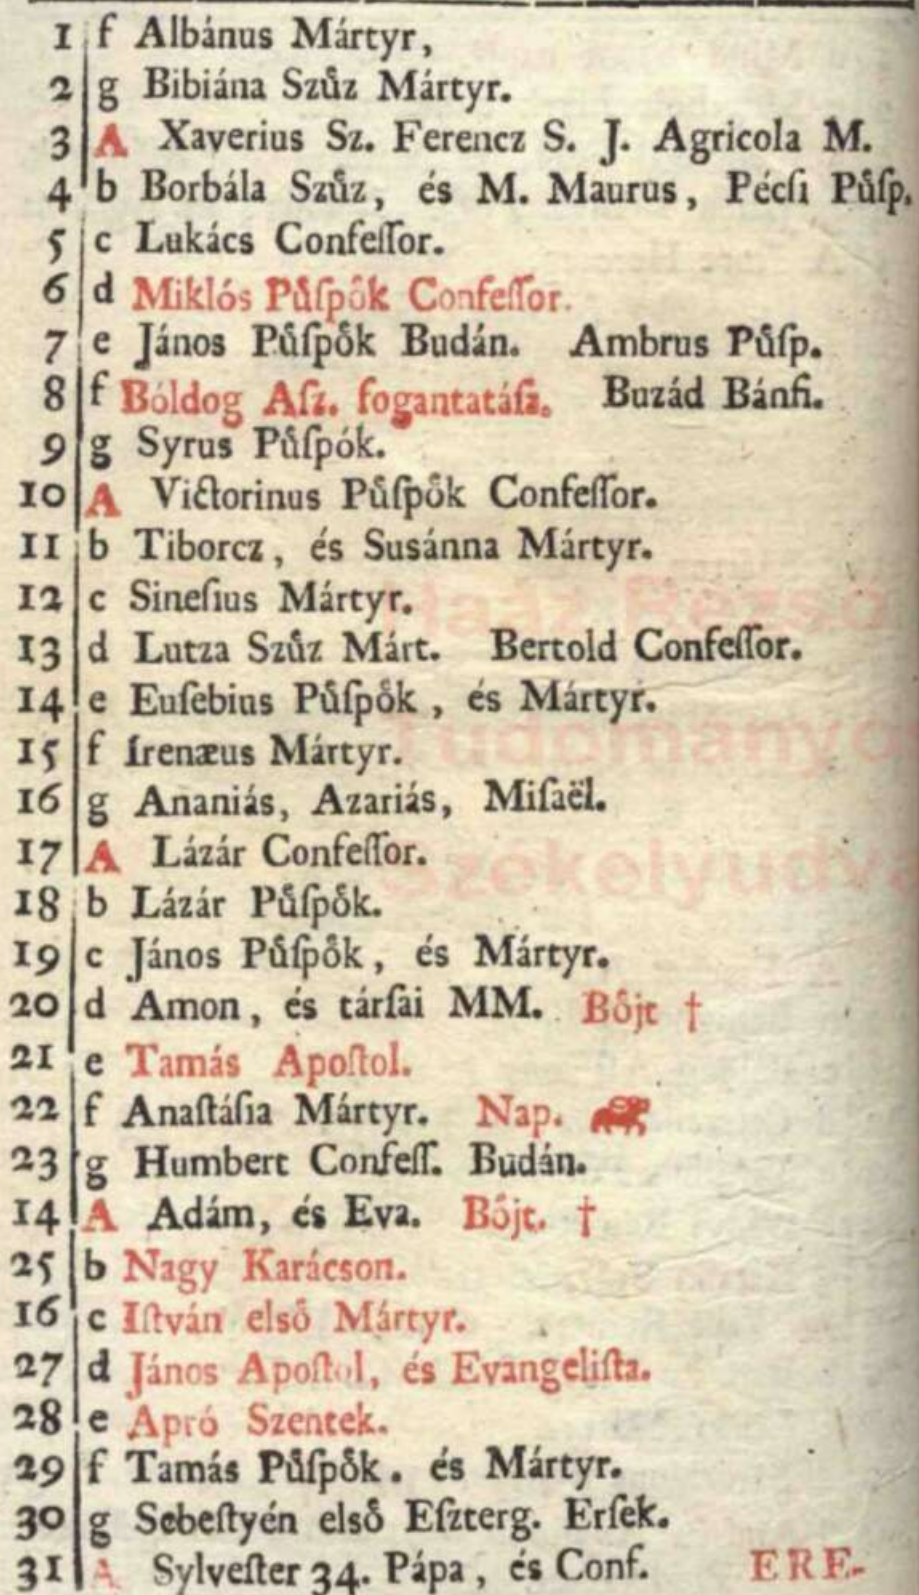 1 f Albánus Mártyr,
2 g Bibiána Szůz Mártyr.
3 A Xaverius Sz. Ferencz S. J. Agricola M.
4 b Borbála Szůz, és M. Maurus, Pécſi Půſp.
5 c Lukács Confeſſor.
6 d Miklós Půſpo̊k Confeſſor.
7 e János Půſpo̊k Budán. Ambrus Půſp.
8 f Bóldog Aſz. fogantatáſa. Buzád Bánfi.
9 g Syrus Půſpók.
10 A Victorinus Půſpo̊k Confeſſor.
11 b Tiborcz, és Susánna Mártyr.
12 c Sineſius Mártyr.
13 d Lutza Szůz Márt. Bertold Confeſſor.
14 e Euſebius Půſpo̊k, és Mártyr.
15 f Irenæus Mártyr.
16 g Ananiás, Azariás, Miſaël.
17 A Lázár Confeſſor.
18 b Lázár Půſpo̊k.
19 c János Půſpo̊k, és Mártyr.
20 d Amon, és társai MM. Bo̊jt †
21 e Tamás Apoſtol.
22 f Anaſtáſia Mártyr. Nap.
23 g Humbert Confeſſ. Budán.
14 A Adám, és Eva. Bo̊jt. †
25 b Nagy Karácson.
16 c Iſtván elso̊ Mártyr.
27 d János Apoſtol, és Evangeliſta.
28 e Apró Szentek.
29 f Tamás Půſpo̊k. és Mártyr.
30 g Sebeſtyén elso̊ Eſzterg. Erſek.
31 A Sylveſter 34. Pápa, és Conf. ERE-